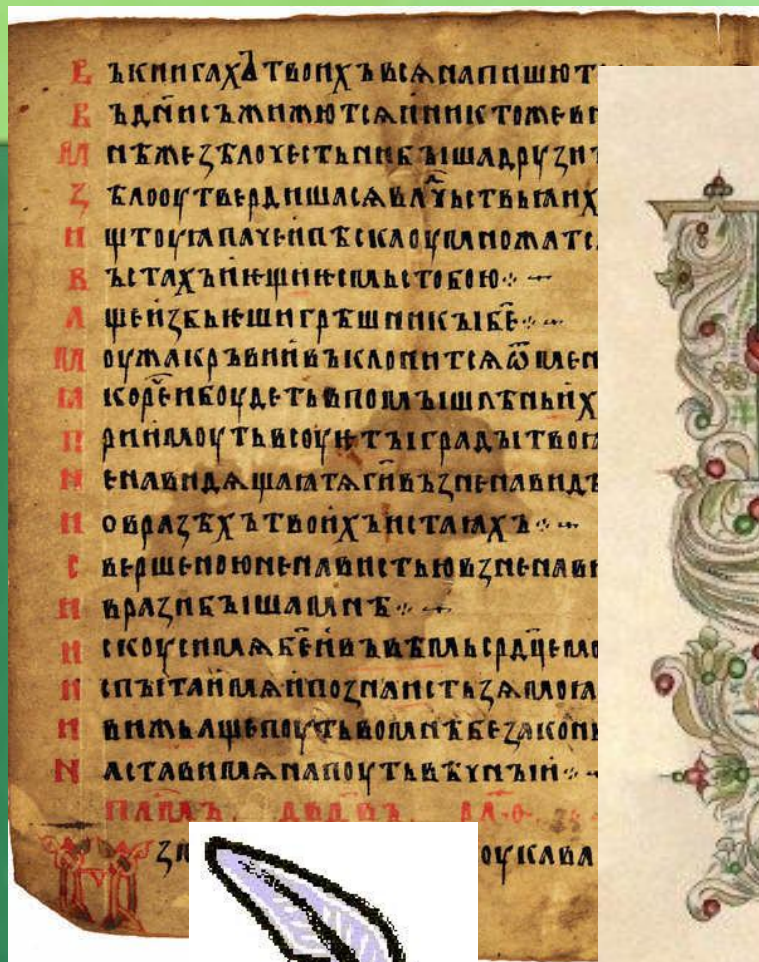 В ЪКНИГАХЪТВОИХЪВСѦНАПИШЮТ
В ЪДН҃ИСЪЖИЖЮТСѦИНИКТОЖЕВ
М НѢЖЕꙀѢЛОЧЕСТЬНИБЪІШАДРУꙀИ
Ꙁ ѢЛООУТВЕРДИШАСѦВЛЧ҃ЬСТВЬꙖИХ
И ШТОУꙖПАЧЕИПѢСКАОУМНОЖАТС
В ЪСТАХЪИѤЩИѤСМЬСТОБОЮ
А ЩЕИꙀБЬѤШИГРѢШНИКЪІБЕ҃
М ОУЖАКРЪВИИВЪКЛОНИТСѦѾМЕН
Ꙗ КОРЕ҃НБОУДЕТЬВПОМЪІШЛѢНЬИХ
П РИИМОУТЬВСОУѤТЪІГРАДЪІТВОꙖ
Н ЕНАВИДѦЩАꙖТѦГИ҃ВЪꙀНЕНАВИДѢ
И ОВРАꙀѢХЪТВОИХЪИСТАꙖХЪ
С ВЕРШЕНОЮНЕНАВИСТЬЮВꙀНЕНАВИ
И ВРАꙀИБЪІШАМНѢ
И СКОУСИМѦБЕ҃ИВЪВѢМЬСРДЦ҃ЕМО
И СПЪІТАИМѦИПОꙀНАИСТЬꙀѦМОꙖ
И ВИЖЬАЩЕПОУТЬВОМНѢБЕꙀАКОНЬ
Н АСТАВИМѦНАПОУТЬВѢЧНЪІИ
ОУКАВА